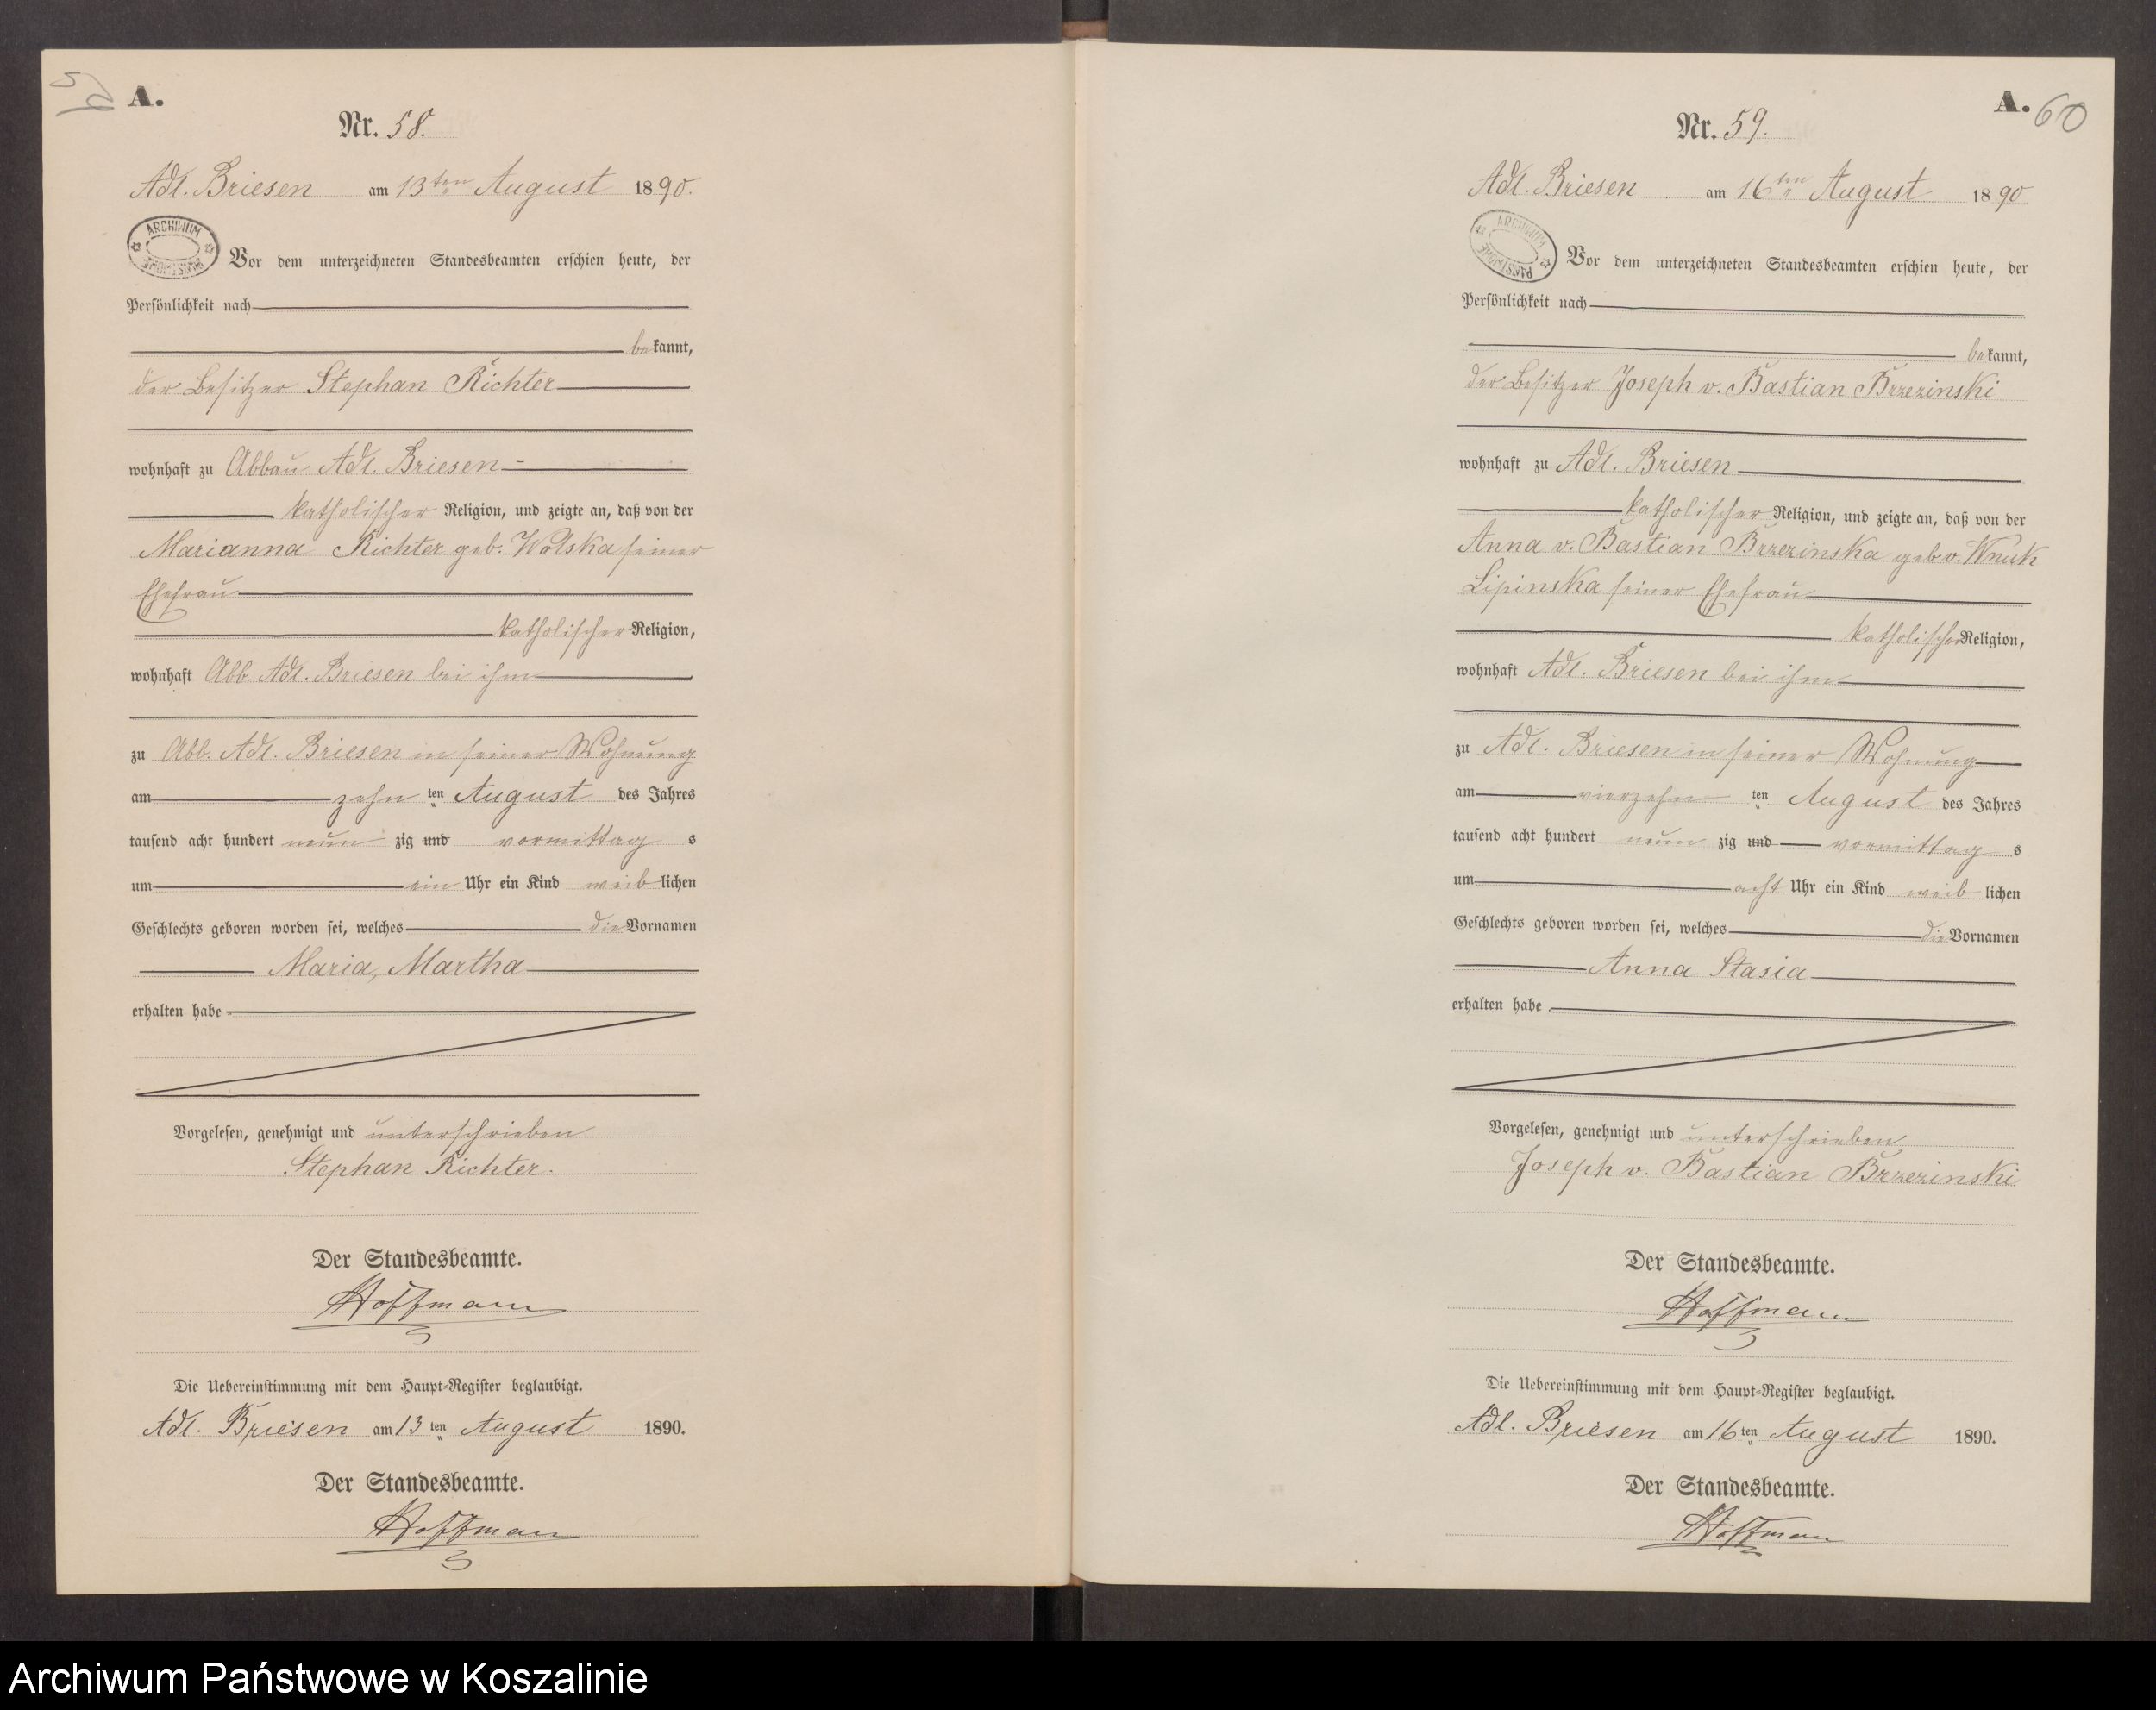 A.
Nr. 58.
Adl. Briesen am 13ten August 1890.
ARCHIWUM PAŃSTWOWE
Vor dem unterzeichneten Standesbeamten erschien heute, der
Persönlichkeit nach
bekannt,
der Besitzer Stephan Richter
wohnhaft zu Abbau Adl. Briesen
katholischer Religion, und zeigte an, daß von der
Marianna Richter geb. Wolska seiner
Ehefrau
katholischer Religion,
wohnhaft Abb. Adl. Briesen bei ihm
zu Abb. Adl. Briesen in seiner Wohnung
am zehn ten August des Jahres
tausend acht hundert neun zig und vormittag s
um ein Uhr ein Kind weib lichen
Geschlechts geboren worden sei, welches die Vornamen
Maria, Martha
erhalten habe
Vorgelesen, genehmigt und unterschrieben
Stephan Richter.
Der Standesbeamte.
Hoffmann
Die Uebereinstimmung mit dem Haupt-Register beglaubigt.
Adl. Briesen am 13 ten August 1890.
Der Standesbeamte.
Hoffmann
A. 60
Nr. 59.
Adl. Briesen am 16ten August 1890
ARCHIWUM PAŃSTWOWE
Vor dem unterzeichneten Standesbeamten erschien heute, der
Persönlichkeit nach
bekannt,
der Besitzer Joseph v. Bastian Brzezinski
wohnhaft zu Adl. Briesen
katholischer Religion, und zeigte an, daß von der
Anna v. Bastian Brzezinska geb v. Wnuk
Lipinska seiner Ehefrau
katholischer Religion,
wohnhaft Adl. Briesen bei ihm
zu Adl. Briesen in seiner Wohnung
am vierzehn ten August des Jahres
tausend acht hundert neun zig und vormittag s
um acht Uhr ein Kind weib lichen
Geschlechts geboren worden sei, welches die Vornamen
Anna Stasia
erhalten habe
Vorgelesen, genehmigt und unterschrieben
Joseph v. Bastian Brzezinski
Der Standesbeamte.
Hoffmann
Die Uebereinstimmung mit dem Haupt-Register beglaubigt.
Adl. Briesen am 16 ten August 1890.
Der Standesbeamte.
Hoffmann
Archiwum Państwowe w Koszalinie